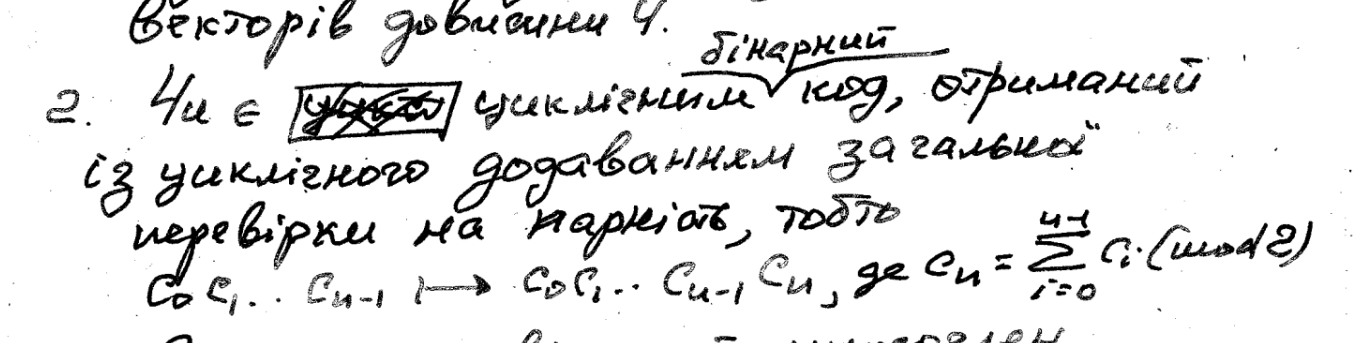 векторів довжини 4.
бінарний
2. Чи є циклічним код, отриманий
із циклічного додаванням загальної
перевірки на парність, тобто
c₀c₁..cₙ₋₁ ↦ c₀c₁..cₙ₋₁cₙ, де cₙ = ∑ᵢ₌₀ⁿ⁻¹ cᵢ (mod 2)